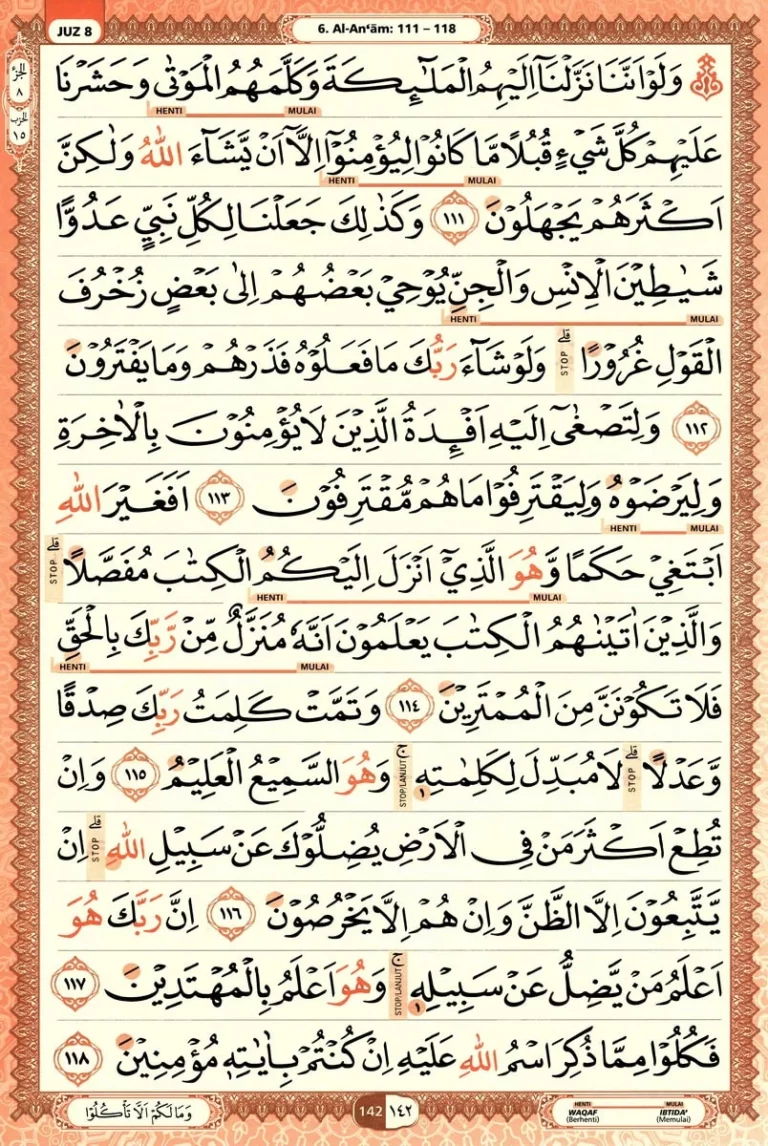 JUZ 8
6. Al-An‘ām: 111 – 118
الجزء
٨
الحزب
١٥
وَلَوْ اَنَّنَا نَزَّلْنَآ اِلَيْهِمُ الْمَلٰۤىِٕكَةَ وَكَلَّمَهُمُ الْمَوْتٰى وَحَشَرْنَا
HENTI MULAI
عَلَيْهِمْ كُلَّ شَيْءٍ قُبُلًا مَّا كَانُوْا لِيُؤْمِنُوْٓا اِلَّآ اَنْ يَّشَاۤءَ اللّٰهُ وَلٰكِنَّ
HENTI MULAI
اَكْثَرَهُمْ يَجْهَلُوْنَ ١١١ وَكَذٰلِكَ جَعَلْنَا لِكُلِّ نَبِيٍّ عَدُوًّا
شَيٰطِيْنَ الْاِنْسِ وَالْجِنِّ يُوْحِيْ بَعْضُهُمْ اِلٰى بَعْضٍ زُخْرُفَ
HENTI MULAI
الْقَوْلِ غُرُوْرًا ۗ STOP وَلَوْ شَاۤءَ رَبُّكَ مَا فَعَلُوْهُ فَذَرْهُمْ وَمَا يَفْتَرُوْنَ
١١٢ وَلِتَصْغٰٓى اِلَيْهِ اَفْـِٕدَةُ الَّذِيْنَ لَا يُؤْمِنُوْنَ بِالْاٰخِرَةِ
وَلِيَرْضَوْهُ وَلِيَقْتَرِفُوْا مَا هُمْ مُّقْتَرِفُوْنَ ١١٣ اَفَغَيْرَ اللّٰهِ
HENTI MULAI
اَبْتَغِيْ حَكَمًا وَّهُوَ الَّذِيْٓ اَنْزَلَ اِلَيْكُمُ الْكِتٰبَ مُفَصَّلًا ۗ STOP
HENTI MULAI
وَالَّذِيْنَ اٰتَيْنٰهُمُ الْكِتٰبَ يَعْلَمُوْنَ اَنَّهٗ مُنَزَّلٌ مِّنْ رَّبِّكَ بِالْحَقِّ
HENTI MULAI
فَلَا تَكُوْنَنَّ مِنَ الْمُمْتَرِيْنَ ١١٤ وَتَمَّتْ كَلِمَتُ رَبِّكَ صِدْقًا
وَّعَدْلًا ۗ STOP لَا مُبَدِّلَ لِكَلِمٰتِهٖ ۚ STOP/LANJUT ١ وَهُوَ السَّمِيْعُ الْعَلِيْمُ ١١٥ وَاِنْ
تُطِعْ اَكْثَرَ مَنْ فِى الْاَرْضِ يُضِلُّوْكَ عَنْ سَبِيْلِ اللّٰهِ ۗ STOP اِنْ
يَّتَّبِعُوْنَ اِلَّا الظَّنَّ وَاِنْ هُمْ اِلَّا يَخْرُصُوْنَ ١١٦ اِنَّ رَبَّكَ هُوَ
اَعْلَمُ مَنْ يَّضِلُّ عَنْ سَبِيْلِهٖ ۚ STOP/LANJUT ١ وَهُوَ اَعْلَمُ بِالْمُهْتَدِيْنَ ١١٧
فَكُلُوْا مِمَّا ذُكِرَ اسْمُ اللّٰهِ عَلَيْهِ اِنْ كُنْتُمْ بِاٰيٰتِهٖ مُؤْمِنِيْنَ ١١٨
وَمَا لَكُمْ اَلَّا تَأْكُلُوْا
142 ١٤٢
HENTI MULAI
WAQAF IBTIDA'
(Berhenti) (Memulai)